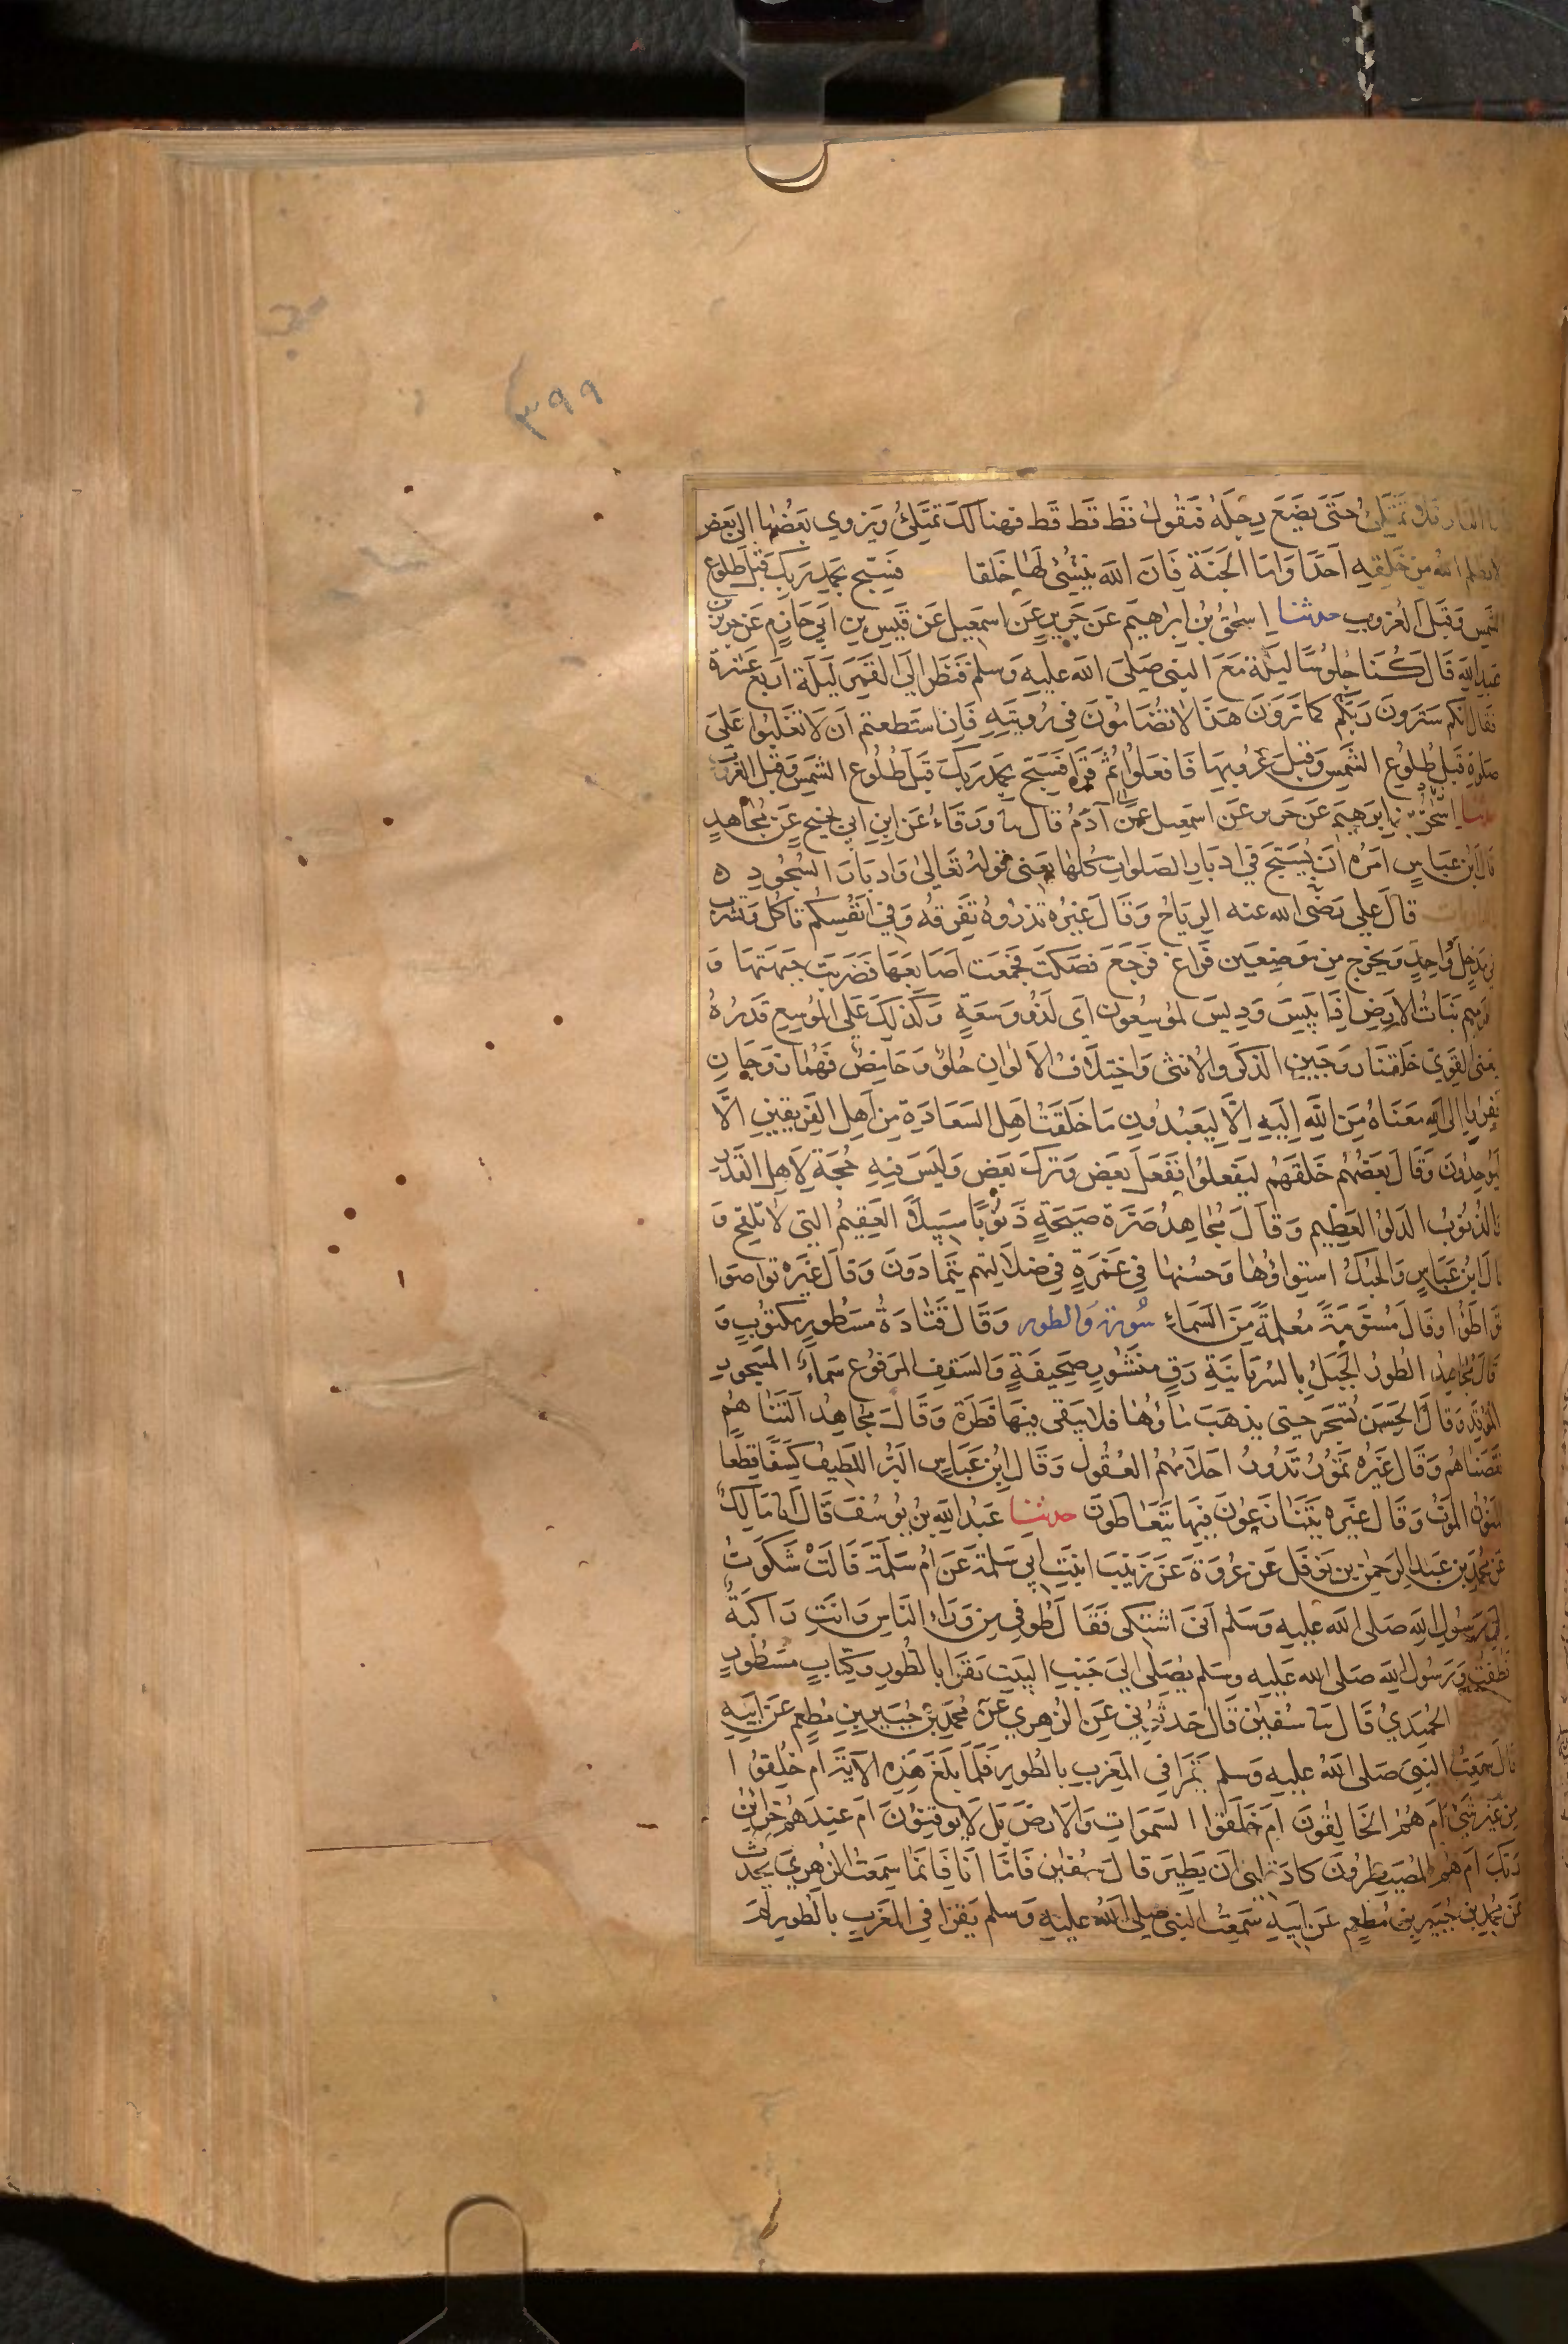 ٣٩٩
النار فلا تمتلئ حتى يضع رجله فتقول قط قط قط فهنالك تمتلئ ويزوى بعضها الى بعض
ولا يظلم الله من خلقه احدا واما الجنة فان الله ينشئ لها خلقا فسبح بحمد ربك قبل طلوع
الشمس وقبل الغروب حدثنا اسحق بن ابراهيم عن جرير عن اسمعيل عن قيس بن ابي حازم عن جرير بن
عبد الله قال كنا جلوسا ليلة مع النبي صلى الله عليه وسلم فنظر الى القمر ليلة اربع عشرة
فقال انكم سترون ربكم كما ترون هذا لا تضامون في رويته فان استطعتم ان لا تغلبوا على
صلوة قبل طلوع الشمس وقبل غروبها فافعلوا ثم قرا فسبح بحمد ربك قبل طلوع الشمس وقبل الغروب
حدثنا اسحق بن ابرهيم عن جرير عن اسمعيل عن آدم قال ثنا ورقاء عن ابن ابي نجيح عن مجاهد
قال ابن عباس امره ان يسبح في ادبار الصلوات كلها يعنى قوله تعالى وادبار السجود ه
والذاريات قال علي رضى الله عنه الرياح وقال غيره تذروه تفرقه وفي انفسكم تاكل وتشرب
في مدخل واحد ويخرج من موضعين فراغ فرجع فصكت فجمعت اصابعها فضربت جبهتها و
الرميم نبات الارض اذا يبس وديس لموسعون اى لذوو سعة وكذلك على الموسع قدره
يعنى القوي خلقنا زوجين الذكر والانثى واختلاف الالوان حلو وحامض فهما زوجان
ففروا الى الله معناه من الله اليه الا ليعبدون ما خلقت اهل السعادة من اهل الفريقين الا
ليوحدون وقال بعضهم خلقهم ليفعلوا ففعل بعض وترك بعض وليس فيه حجة لاهل القدر
والذنوب الدلو العظيم وقال مجاهد صرة صيحة ذنوبا سبيلا العقيم التي لا تلقح و
قال ابن عباس والحبك استواؤها وحسنها في غمرة في ضلالتهم يتمادون وقال غيره تواصوا
تواطؤا وقال مسومة معلمة من السماء سورة والطور وقال قتادة مسطور مكتوب و
قال مجاهد الطور الجبل بالسريانية رق منشور صحيفة والسقف المرفوع سماء المسجور
الموقد وقال الحسن تسجر حتى يذهب ماؤها فلا يبقى فيها قطرة وقال مجاهد التناهم
نقصناهم وقال غيره تمور تدور احلامهم العقول وقال ابن عباس البر اللطيف كسفا قطعا
المنون الموت وقال غيره يتنازعون فيها يتعاطون حدثنا عبد الله بن يوسف قال انا مالك
عن محمد بن عبد الرحمن بن نوفل عن عروة عن زينب ابنت ابي سلمة عن ام سلمة قالت شكوت
الى رسول الله صلى الله عليه وسلم انى اشتكى فقال طوفي من وراء الناس وانت راكبة
فطفت ورسول الله صلى الله عليه وسلم يصلى الى جنب البيت يقرا بالطور وكتاب مسطور
الحميدي قال ثنا سفين قال حدثوني عن الزهري عن محمد بن جبير بن مطعم عن ابيه
قال سمعت النبي صلى الله عليه وسلم يقرا في المغرب بالطور فلما بلغ هذه الاية ام خلقوا
من غير شئ ام هم الخالقون ام خلقوا السموات والارض بل لا يوقنون ام عندهم خزائن
ربك ام هم المصيطرون كاد قلبى ان يطير قال سفين فاما انا فانما سمعت الزهري يحدث
عن محمد بن جبير بن مطعم عن ابيه سمعت النبي صلى الله عليه وسلم يقرا في المغرب بالطور لم